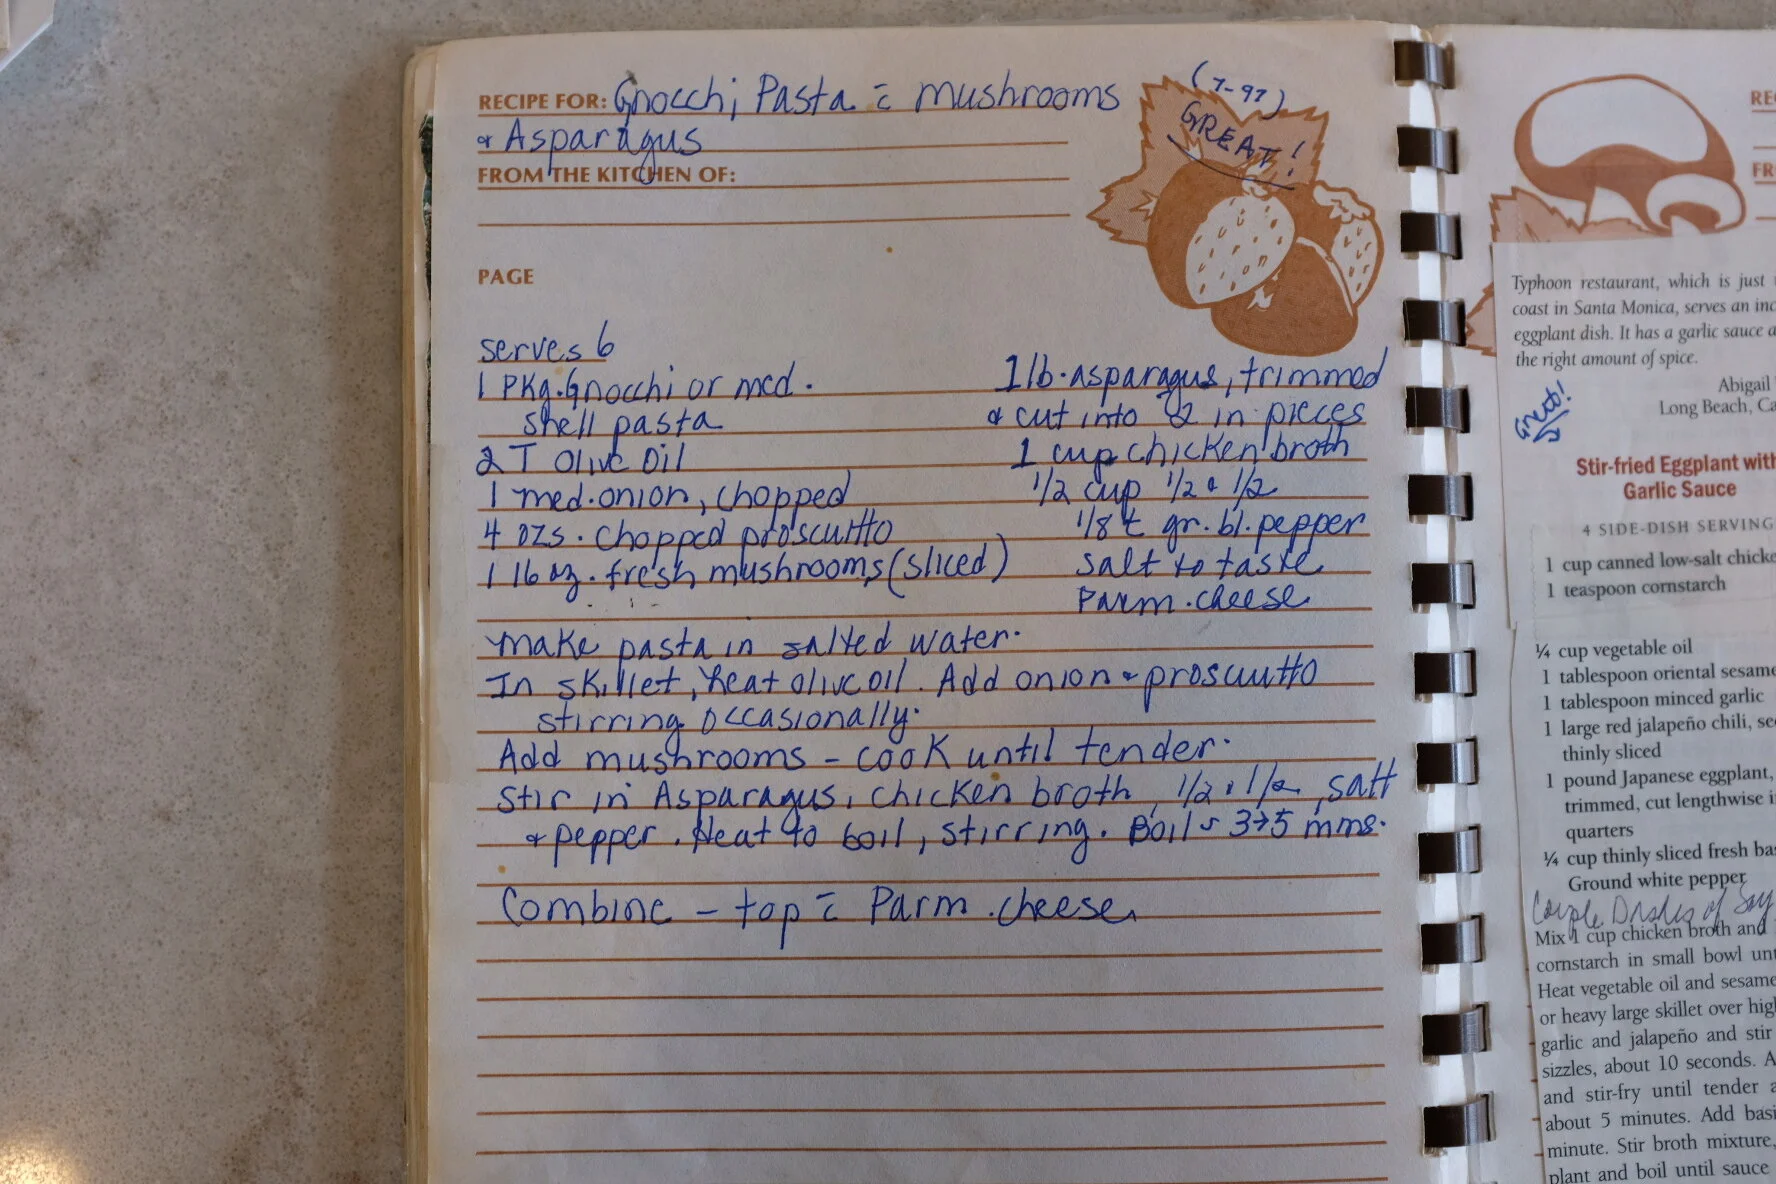 RECIPE FOR: Gnocchi Pasta c̄ mushrooms
& Asparagus
(7-97)
GREAT!
FROM THE KITCHEN OF:
PAGE
serves 6
1 PKg. Gnocchi or med.
shell pasta
2 T olive oil
1 med. onion, chopped
4 ozs. chopped proscuitto
1 16 oz. fresh mushrooms (sliced)
1 lb. asparagus, trimmed
& cut into 2 in pieces
1 cup chicken broth
1/2 cup 1/2 & 1/2
1/8 t gr. bl. pepper
salt to taste
Parm. cheese
Make pasta in salted water.
In skillet, heat olive oil. Add onion & proscuitto
stirring occasionally.
Add mushrooms - cook until tender.
Stir in Asparagus, chicken broth, 1/2 & 1/2, salt
& pepper. Heat to boil, stirring. Boil 3→5 mins.
Combine - top c̄ Parm. cheese
Typhoon restaurant, which is just
coast in Santa Monica, serves an
eggplant dish. It has a garlic sauce
the right amount of spice.
Abigail
Long Beach,
Great!
Stir-fried Eggplant with
Garlic Sauce
4 SIDE-DISH SERVING
1 cup canned low-salt
1 teaspoon cornstarch
¼ cup vegetable oil
1 tablespoon oriental
1 tablespoon minced garlic
1 large red jalapeño chili,
thinly sliced
1 pound Japanese eggplant,
trimmed, cut lengthwise
quarters
¼ cup thinly sliced fresh
Ground white pepper
Couple Dashes of Soy
Mix 1 cup chicken broth and
cornstarch in small bowl
Heat vegetable oil and sesame
or heavy large skillet over
garlic and jalapeño and stir
sizzles, about 10 seconds.
and stir-fry until tender
about 5 minutes. Add
minute. Stir broth mixture,
plant and boil until sauce